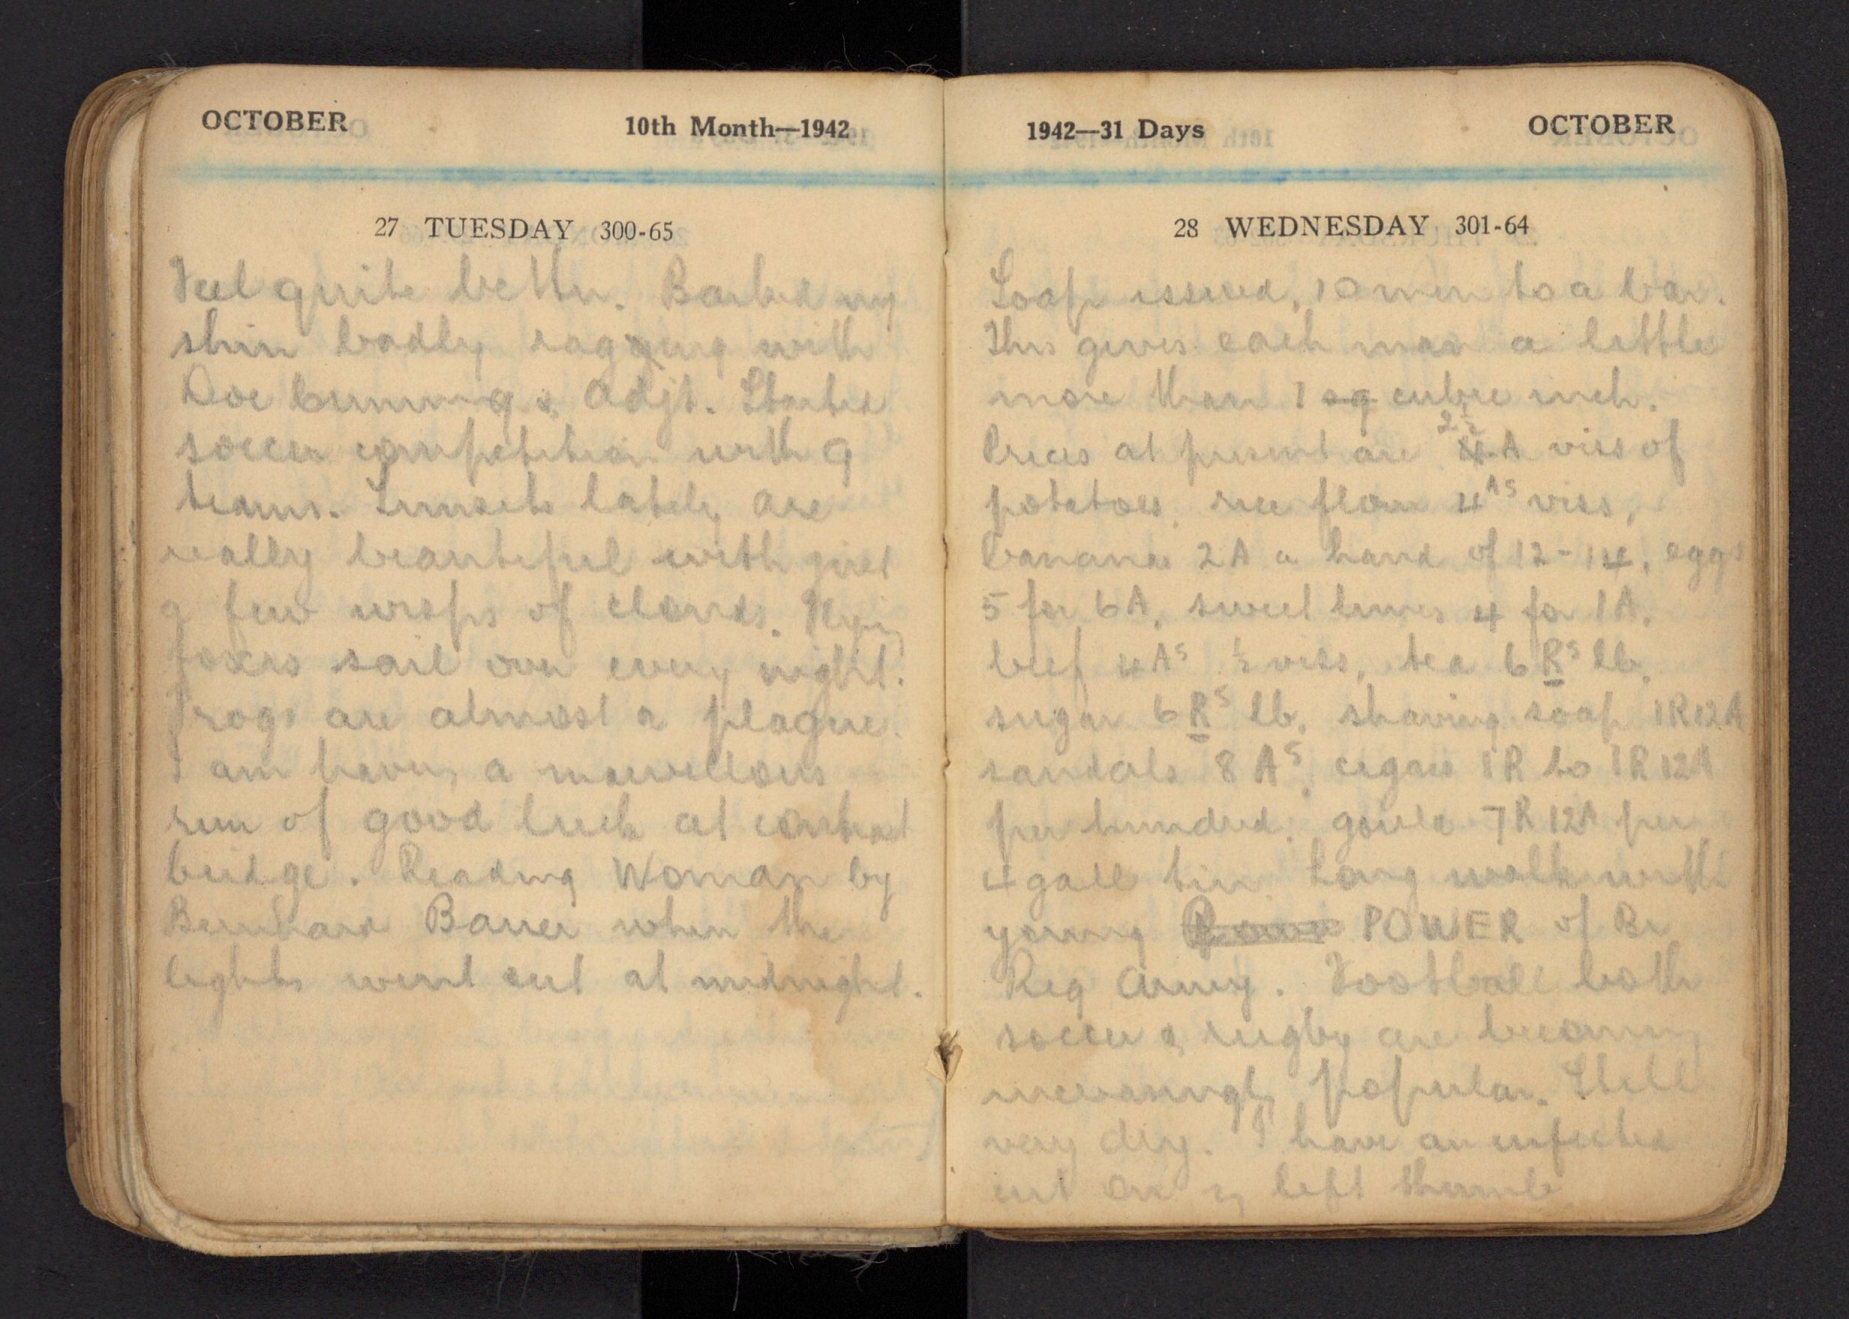 OCTOBER 10th Month—1942
27 TUESDAY 300-65
Feel quite better. Barked my
shin badly ragging with
Doc Cumming & Adjt. Started
soccer competition with 9
teams. Sunsets lately are
really beautiful with just
a few wisps of clouds. Flying
foxes sail over every night.
Frogs are almost a plague.
I am having a marvellous
run of good luck at contract
bridge. Reading Woman by
Bernhard Bauer when the
lights went out at midnight.
1942—31 Days OCTOBER
28 WEDNESDAY 301-64
Soap issued, 10 men to a bar.
This gives each man a little
more than 1 sq cubic inch.
Prices at present are 2½ 4 A viss of
potatoes, rice flour 4 As viss,
bananas 2A a hand of 12-14, eggs
5 for 6A, sweet limes 4 for 1A,
beef 4 As ½ viss, tea 6 Rs lb,
sugar 6 Rs lb, shaving soap 1R12A
sandals 8 As, cigars 1R to 1R 12A
per hundred, goula 7R 12A per
4 gall tin Long walk with
young POWER of Br
Reg Army. Football both
soccer & rugby are becoming
increasingly popular. Still
very dry. I have an infected
cut on my left thumb